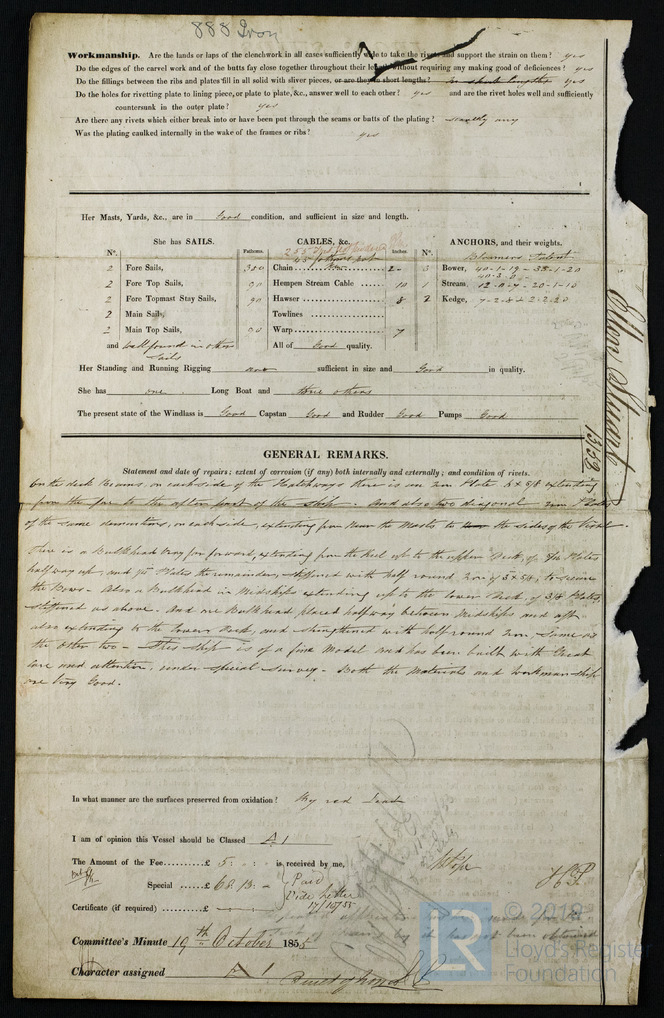 888 Iron
Workmanship. Are the lands or laps of the clenchwork in all cases sufficiently wide to take the rivets and support the strain on them? yes
Do the edges of the carvel work and of the butts fay close together throughout their length without requiring any making good of deficiences? yes
Do the fillings between the ribs and plates fill in all solid with sliver pieces, or are they in short lengths? in short lengths yes
Do the holes for rivetting plate to lining piece, or plate to plate, &c., answer well to each other? yes and are the rivet holes well and sufficiently
countersunk in the outer plate? yes
Are there any rivets which either break into or have been put through the seams or butts of the plating? scarcely any
Was the plating caulked internally in the wake of the frames or ribs? yes
Her Masts, Yards, &c., are in Good condition, and sufficient in size and length.
She has SAILS. CABLES, &c. ANCHORS, and their weights.
N°. Fathoms. Inches. N°.
2 Fore Sails, 300 Chain 2 3 Bower, 40-1-19 - 38-1-20
2 Fore Top Sails, 90 Hempen Stream Cable 10 1 Stream, 12-0-7 - 20-1-10
2 Fore Topmast Stay Sails, 90 Hawser 8 2 Kedge, 7-2-8 & 2-2-20
2 Main Sails, Towlines
2 Main Top Sails, 90 Warp 7
and well found in other All of Good quality.
Sails
Her Standing and Running Rigging sufficient in size and Good in quality.
She has one Long Boat and three others
The present state of the Windlass is Good Capstan Good and Rudder Good Pumps Good
Ellen Stuart
1353
GENERAL REMARKS.
Statement and date of repairs; extent of corrosion (if any) both internally and externally; and condition of rivets.
On the deck Beams, on each side of the Hatchways there is an iron Plate 5/8 extending
from the fore to the after part of the Ship. And also two diagonal iron Plates
of the same dementions, on each side, extending from near the Masts to the sides of the Vessel
There is a Bulkhead forward, extending from the Keel up to the upper Deck, of Plates
half way up, and Plates the remainder, stiffened with half round Iron of to secure
the Bows. Also a Bulkhead in Midships extending up to the lower Deck, of 3/8 Plates,
stiffened as above. And one Bulkhead placed halfway between Midships and aft
also extending to the lower Deck, and strengthened with half round Iron, same as
the other two - This Ship is of a fine Model and has been built with Great
Care and attention, under special survey. Both the Materials and Workmanship
are very Good.
In what manner are the surfaces preserved from oxidation? By red Lead
I am of opinion this Vessel should be Classed A 1
The Amount of the Fee £ 5 : - : - is received by me,
Special £ 68. 13. - Paid
Vide Letter
17/10/55
Certificate (if required) £
Committee's Minute 19th October 1855
Character assigned A 1 Built of Iron
© 2018
Lloyd's Register
Foundation
LR